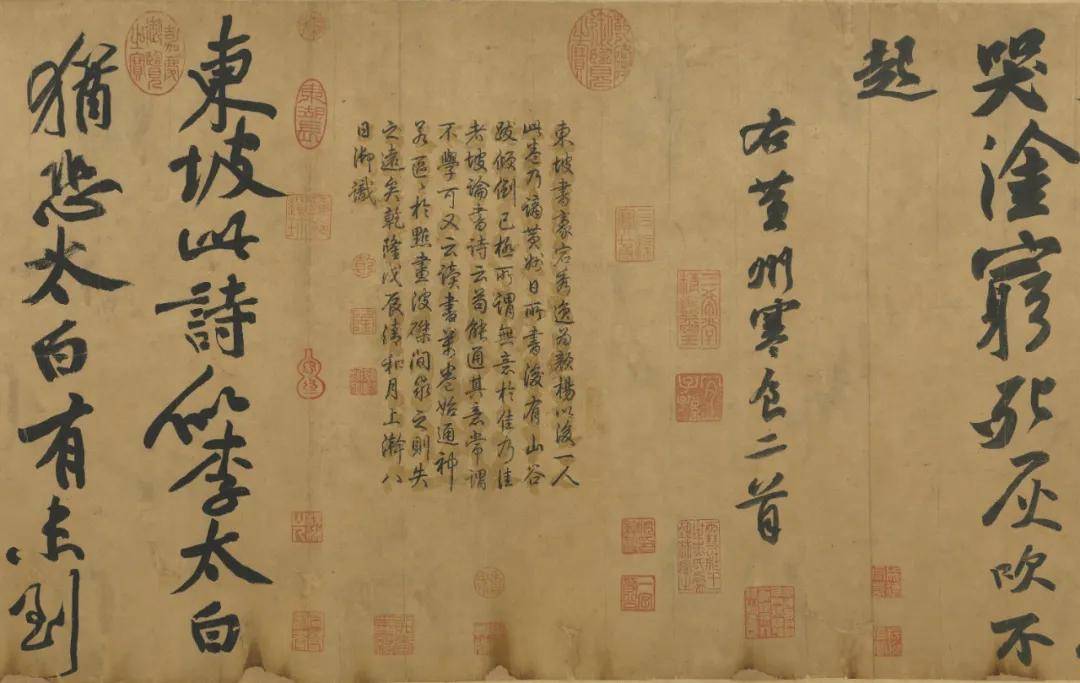 哭塗窮死灰吹不
起
右黃州寒食二首
東坡書豪宕秀逸為顏楊以後一人
此卷乃謫黃州日所書後有山谷
跋傾倒已極所謂無意於佳乃佳
者坡論書詩云苟能通其意常謂
不學可又云讀書萬卷始通神
若區〻於點畫波磔間求之則失
之遠矣乾隆戊辰清和月上澣八
日御識
東坡此詩似李太白
猶恐太白有未到
嘉慶御覽之寶